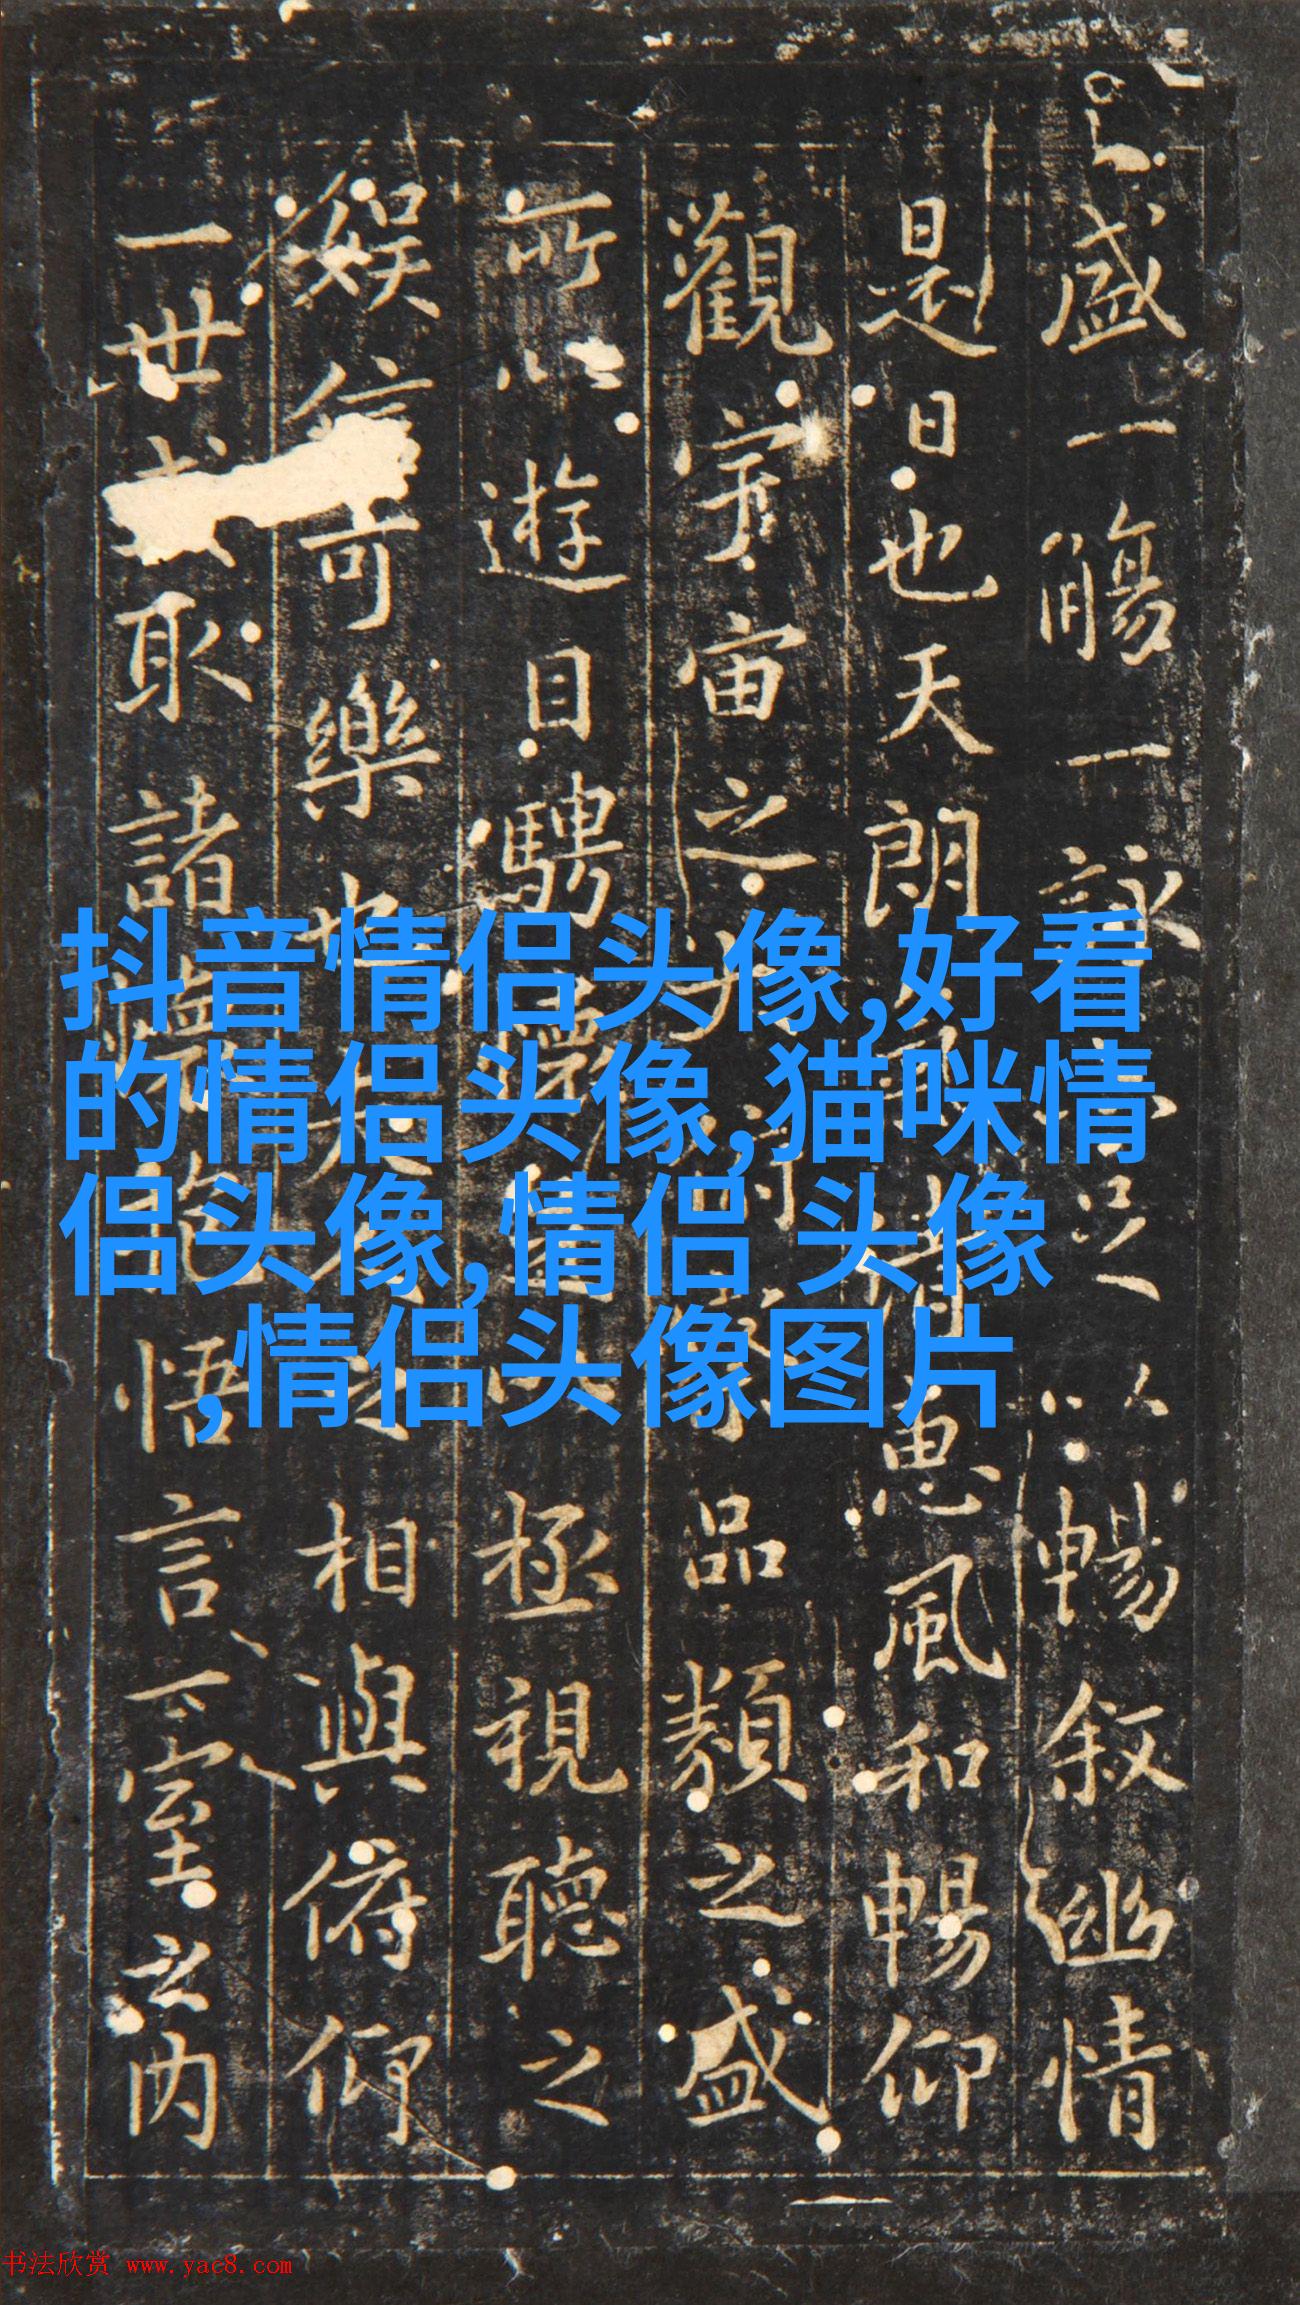 盛一觴一詠亦足以暢叙幽情
是日也天朗氣清惠風和暢仰
觀宇宙之大俯察品類之盛
所以遊目騁懷足以極視聽之
娛信可樂也夫人之相與俯仰
一世或取諸懷抱悟言一室之内
抖音情侣头像,好看
的情侣头像,猫咪情
侣头像,情侣 头像
,情侣头像图片
书法欣赏 www.yac8.com